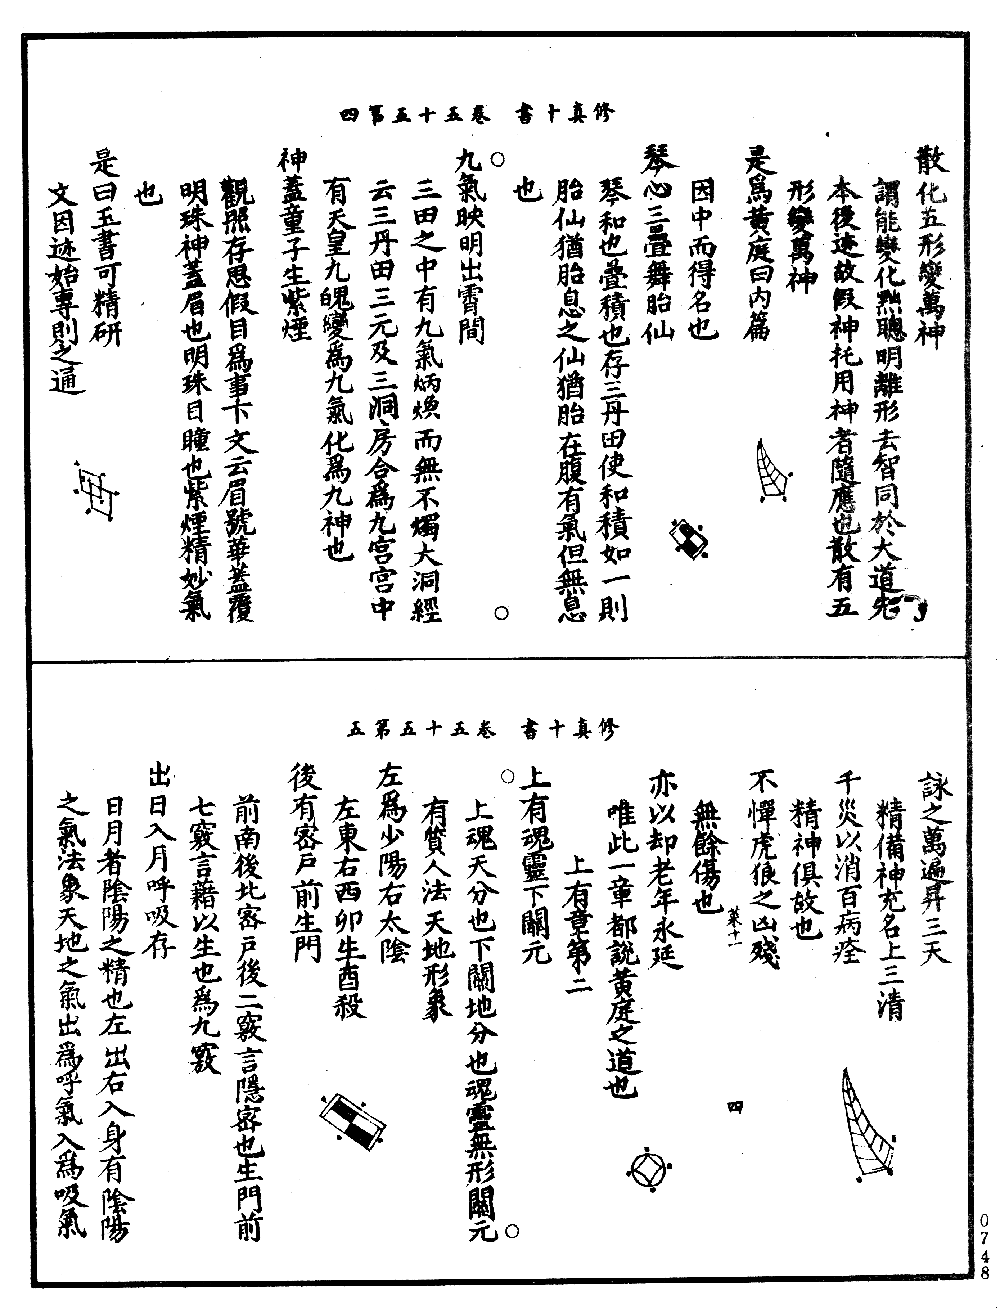 修真十書　卷五十五第四
散化五形變萬神
謂能變化㸃聰明離形去智同於大道先
本後迹故假神托用神者隨應也散有五
形變萬神
是爲黃庭曰內篇
因中而得名也
琴心三疊舞胎仙
琴和也疊積也存三丹田使和積如一則
胎仙猶胎息之仙猶胎在腹有氣但無息
也
九氣映明出霄間
三田之中有九氣炳煥而無不燭大洞經
云三丹田三元及三洞房合爲九宫宫中
有天皇九魄變爲九氣化爲九神也
神蓋童子生紫煙
觀照存思假目爲事卞文云眉號華蓋覆
明珠神蓋眉也明珠目瞳也紫煙精妙氣
也
是曰玉書可精研
文因迹始專則之通
修真十書　卷五十五第五
詠之萬遍昇三天
精備神充名上三清
千災以消百病痊
精神俱故也
不憚虎狼之凶殘
菜十一
四
無餘傷也
亦以却老年永延
唯此一章都說黃庭之道也
上有章第二
上有魂靈下關元
上魂天分也下關地分也魂靈無形關元
有質人法天地形象
左爲少陽右太陰
左東右西卯生酉殺
後有密戶前生門
前南後北密戸後二竅言隱密也生門前
七竅言藉以生也爲九竅
出日入月呼吸存
日月者陰陽之精也左出右入身有陰陽
之氣法象天地之氣出爲呼氣入爲吸氣
0748